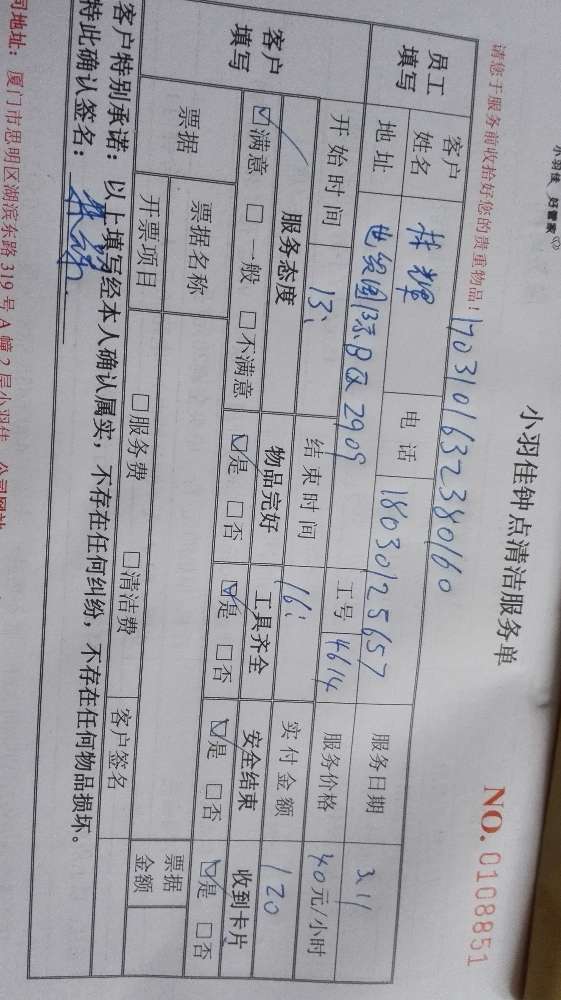 小羽佳 好管家
小羽佳钟点清洁服务单
NO. 0108851
请您于服务前收拾好您的贵重物品！
1703101632380160
员工填写 客户姓名 林輝 电话 18030125657 服务日期 3.11
地址 世贸国际B区2909 工号 4614 服务价格 40元/小时
开始时间 13: 结束时间 16: 实付金额 120
客户填写 服务态度 物品完好 工具齐全 安全结束 收到卡片
☑满意 □一般 □不满意 ☑是 □否 ☑是 □否 ☑是 □否 ☑是 □否
票据 票据名称 票据金额
开票项目 □服务费 □清洁费 客户签名
客户特别承诺：以上填写经本人确认属实，不存在任何纠纷，不存在任何物品损坏。
特此确认签名：
司地址：厦门市思明区湖滨东路319号A幢2层小羽佳 公司网站